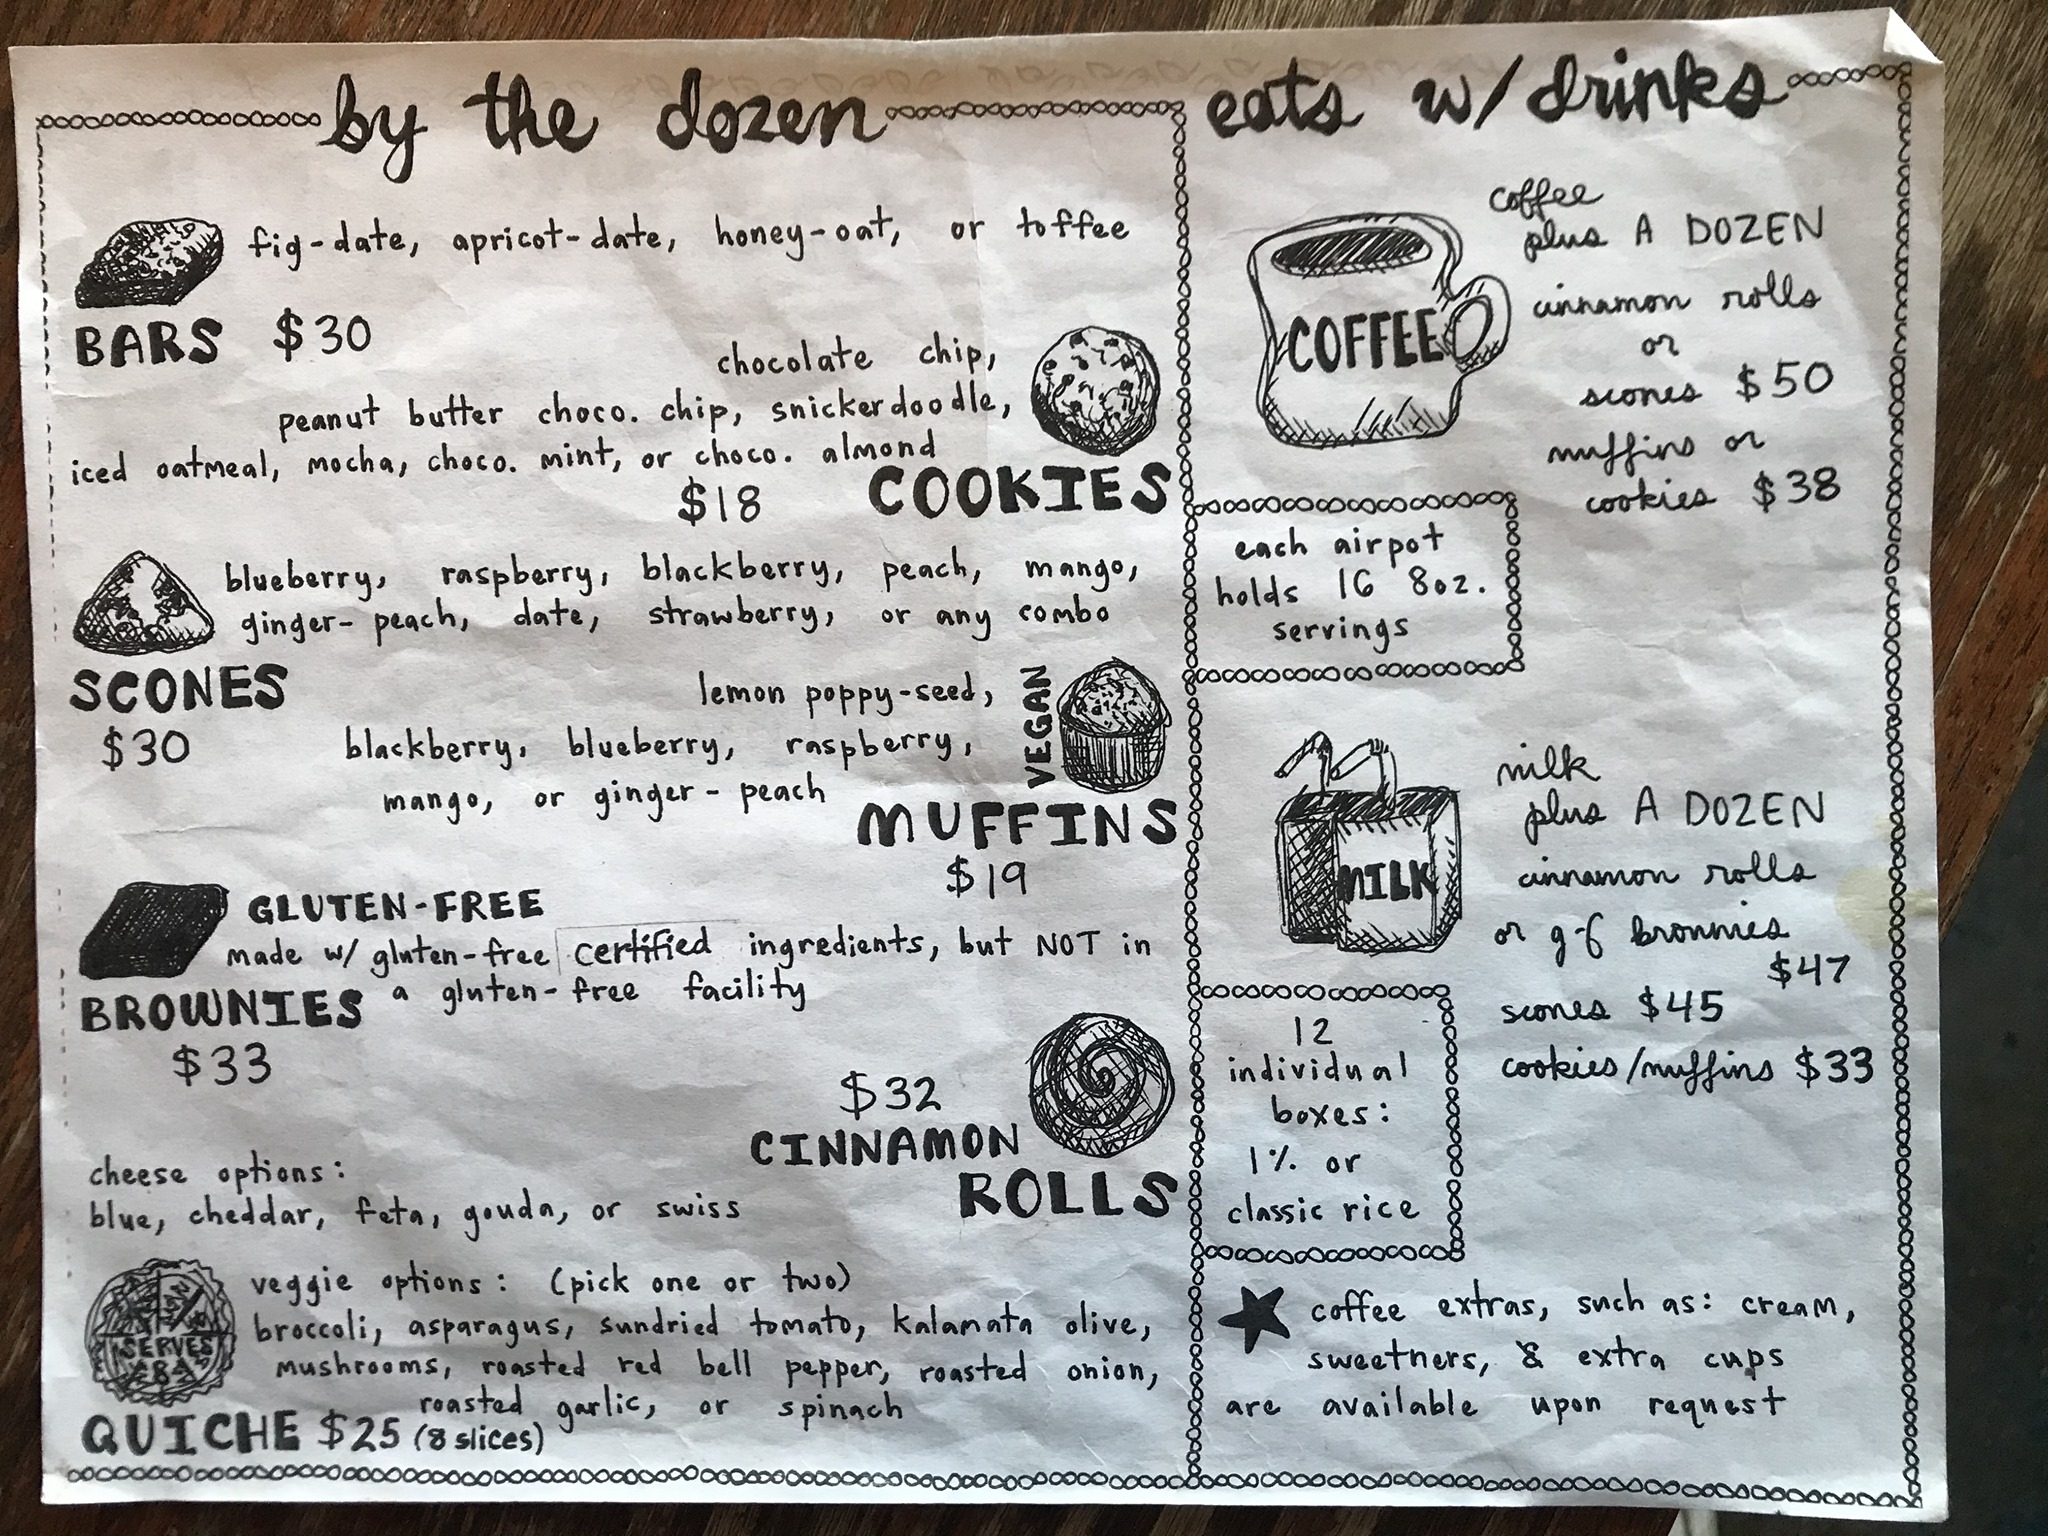 by the dozen
fig-date, apricot-date, honey-oat, or toffee
BARS $30
chocolate chip,
peanut butter choco. chip, snickerdoodle,
iced oatmeal, mocha, choco. mint, or choco. almond
COOKIES
$18
blueberry, raspberry, blackberry, peach, mango,
ginger-peach, date, strawberry, or any combo
SCONES
$30
VEGAN
lemon poppy-seed,
blackberry, blueberry, raspberry,
mango, or ginger-peach
MUFFINS
$19
GLUTEN-FREE
made w/ gluten-free certified ingredients, but NOT in
a gluten-free facility
BROWNIES
$33
$32
CINNAMON
ROLLS
cheese options:
blue, cheddar, feta, gouda, or swiss
veggie options: (pick one or two)
broccoli, asparagus, sundried tomato, kalamata olive,
mushrooms, roasted red bell pepper, roasted onion,
roasted garlic, or spinach
SERVES
8
QUICHE $25 (8 slices)
eats w/ drinks
COFFEE
coffee
plus A DOZEN
cinnamon rolls
or
scones $50
muffins or
cookies $38
each airpot
holds 16 8oz.
servings
MILK
milk
plus A DOZEN
cinnamon rolls
or g-f brownies
$47
scones $45
cookies/muffins $33
12
individual
boxes:
1% or
classic rice
coffee extras, such as: cream,
sweetners, & extra cups
are available upon request